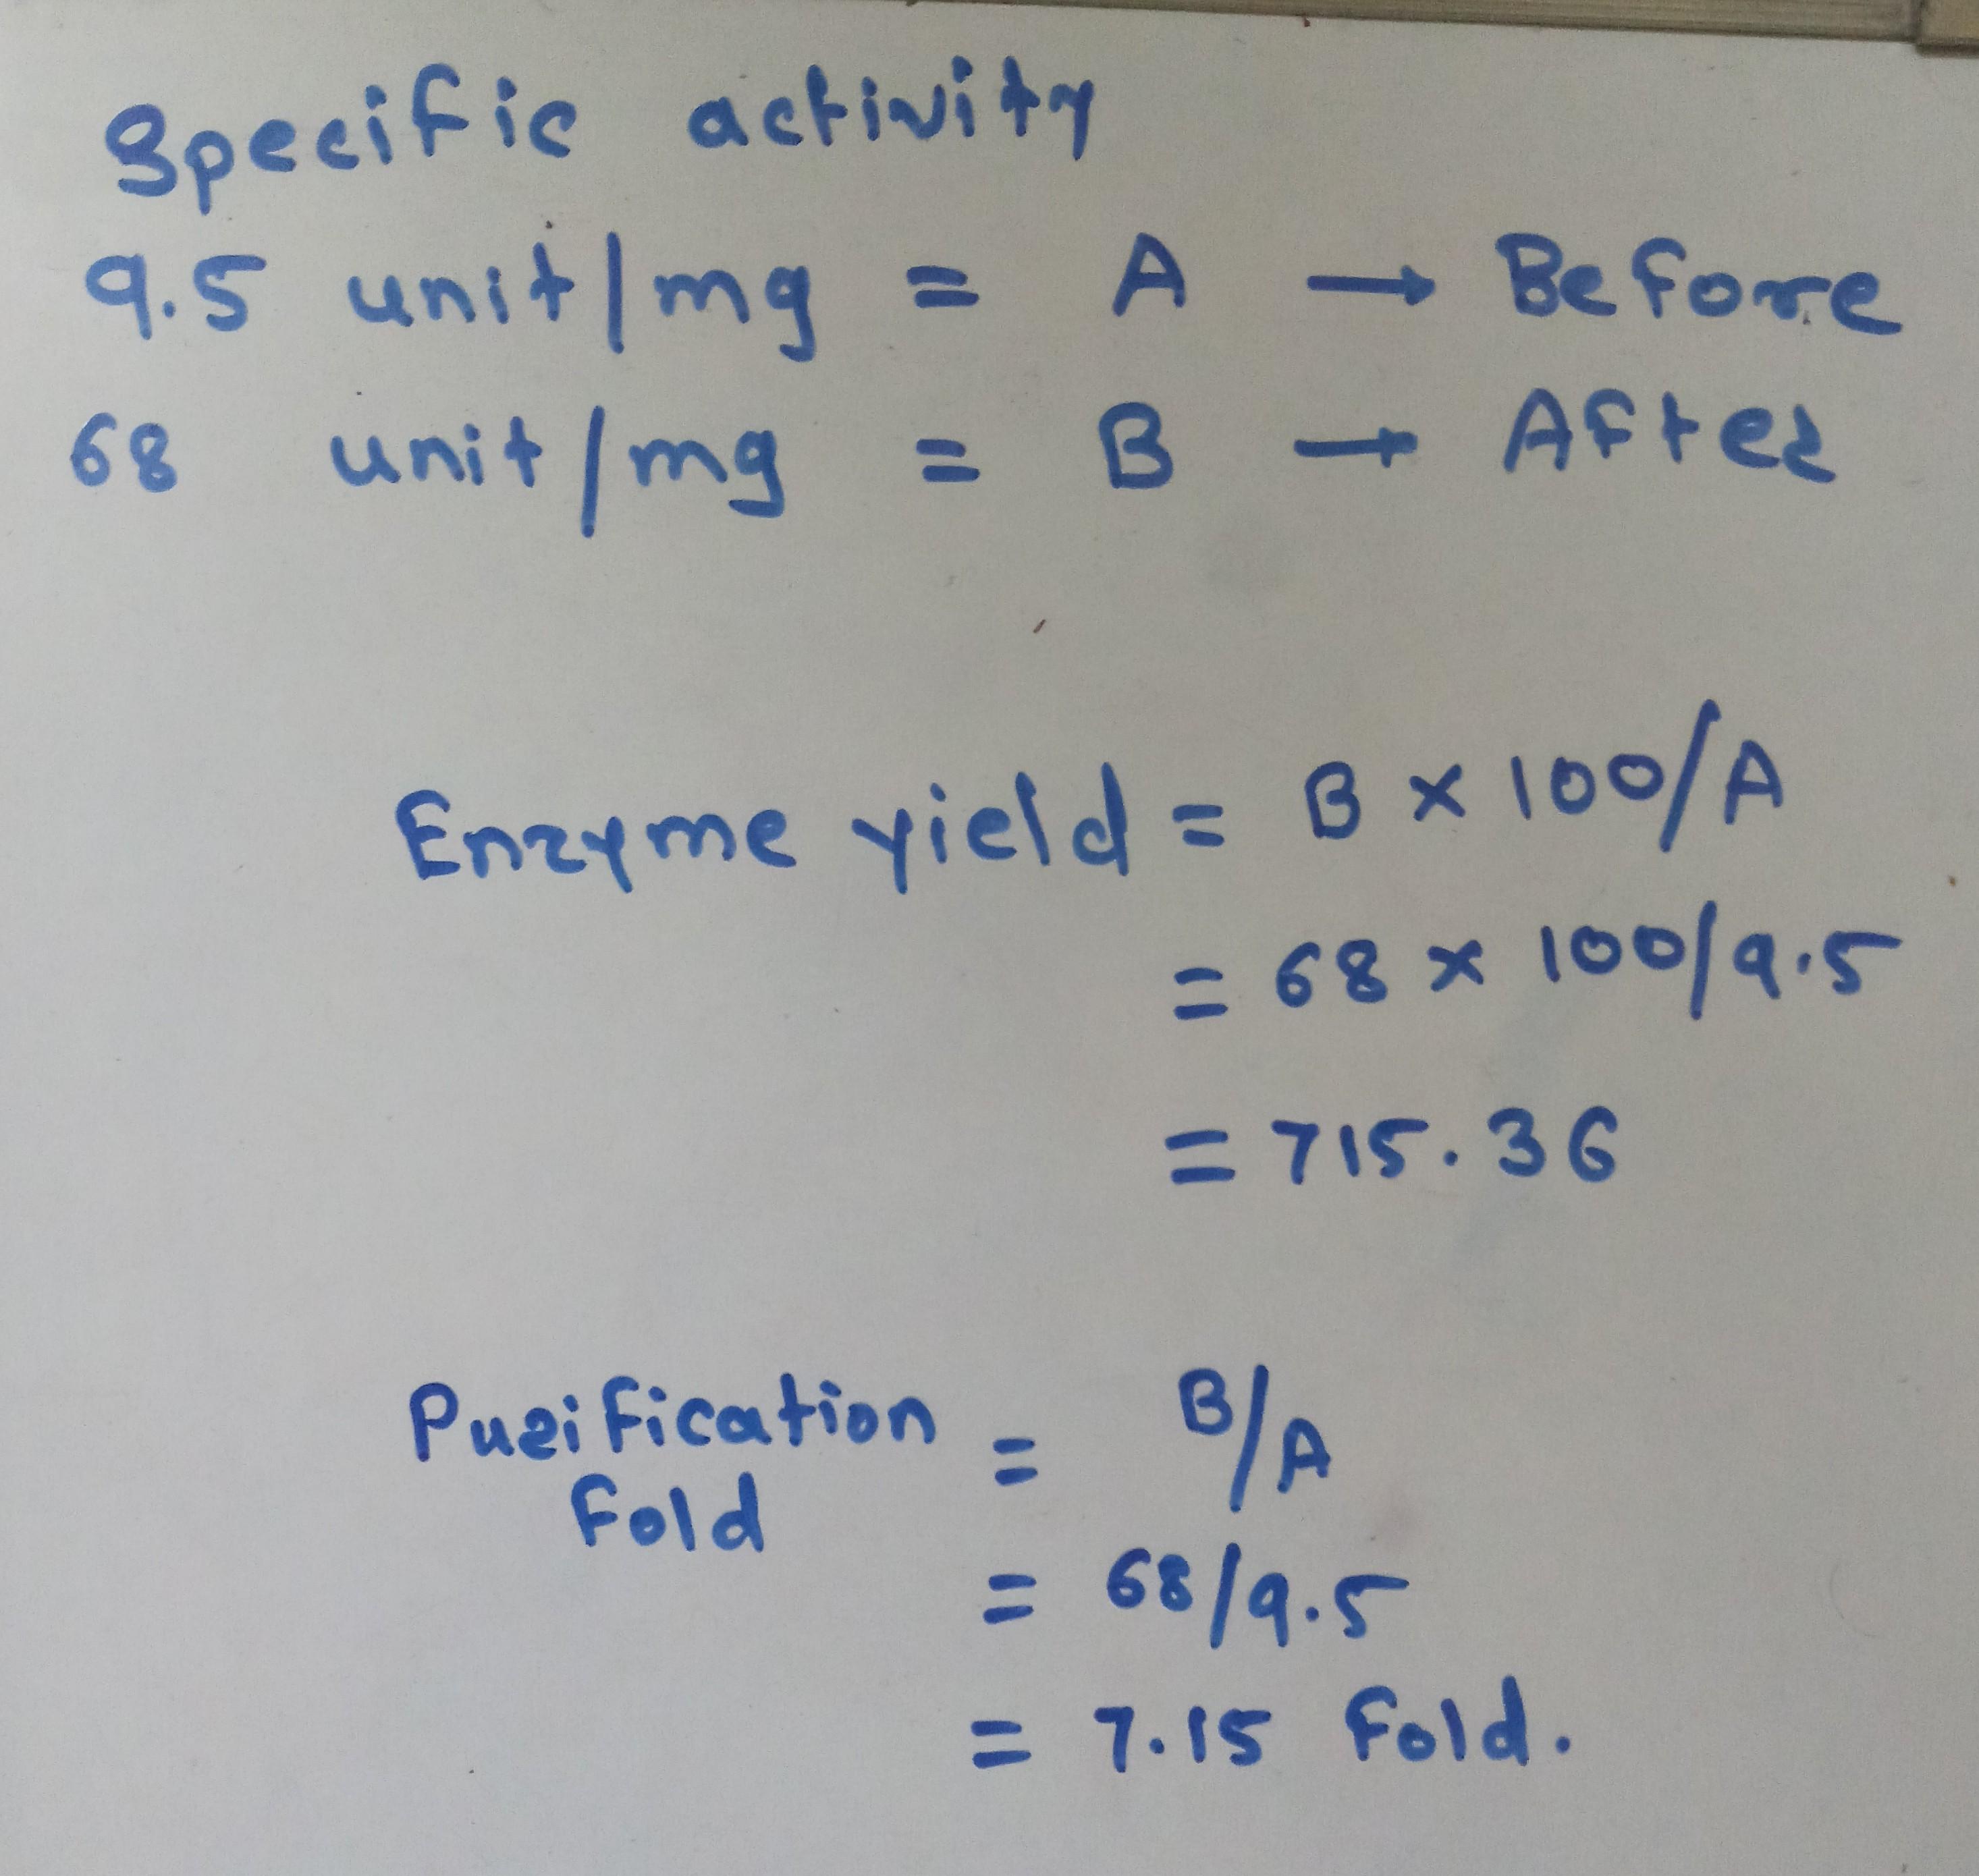 Specific activity
9.5 unit/mg = A → Before
68 unit/mg = B → After
Enzyme yield = B × 100/A
= 68 × 100/9.5
= 715.36
Purification = B/A
Fold
= 68/9.5
= 7.15 Fold.